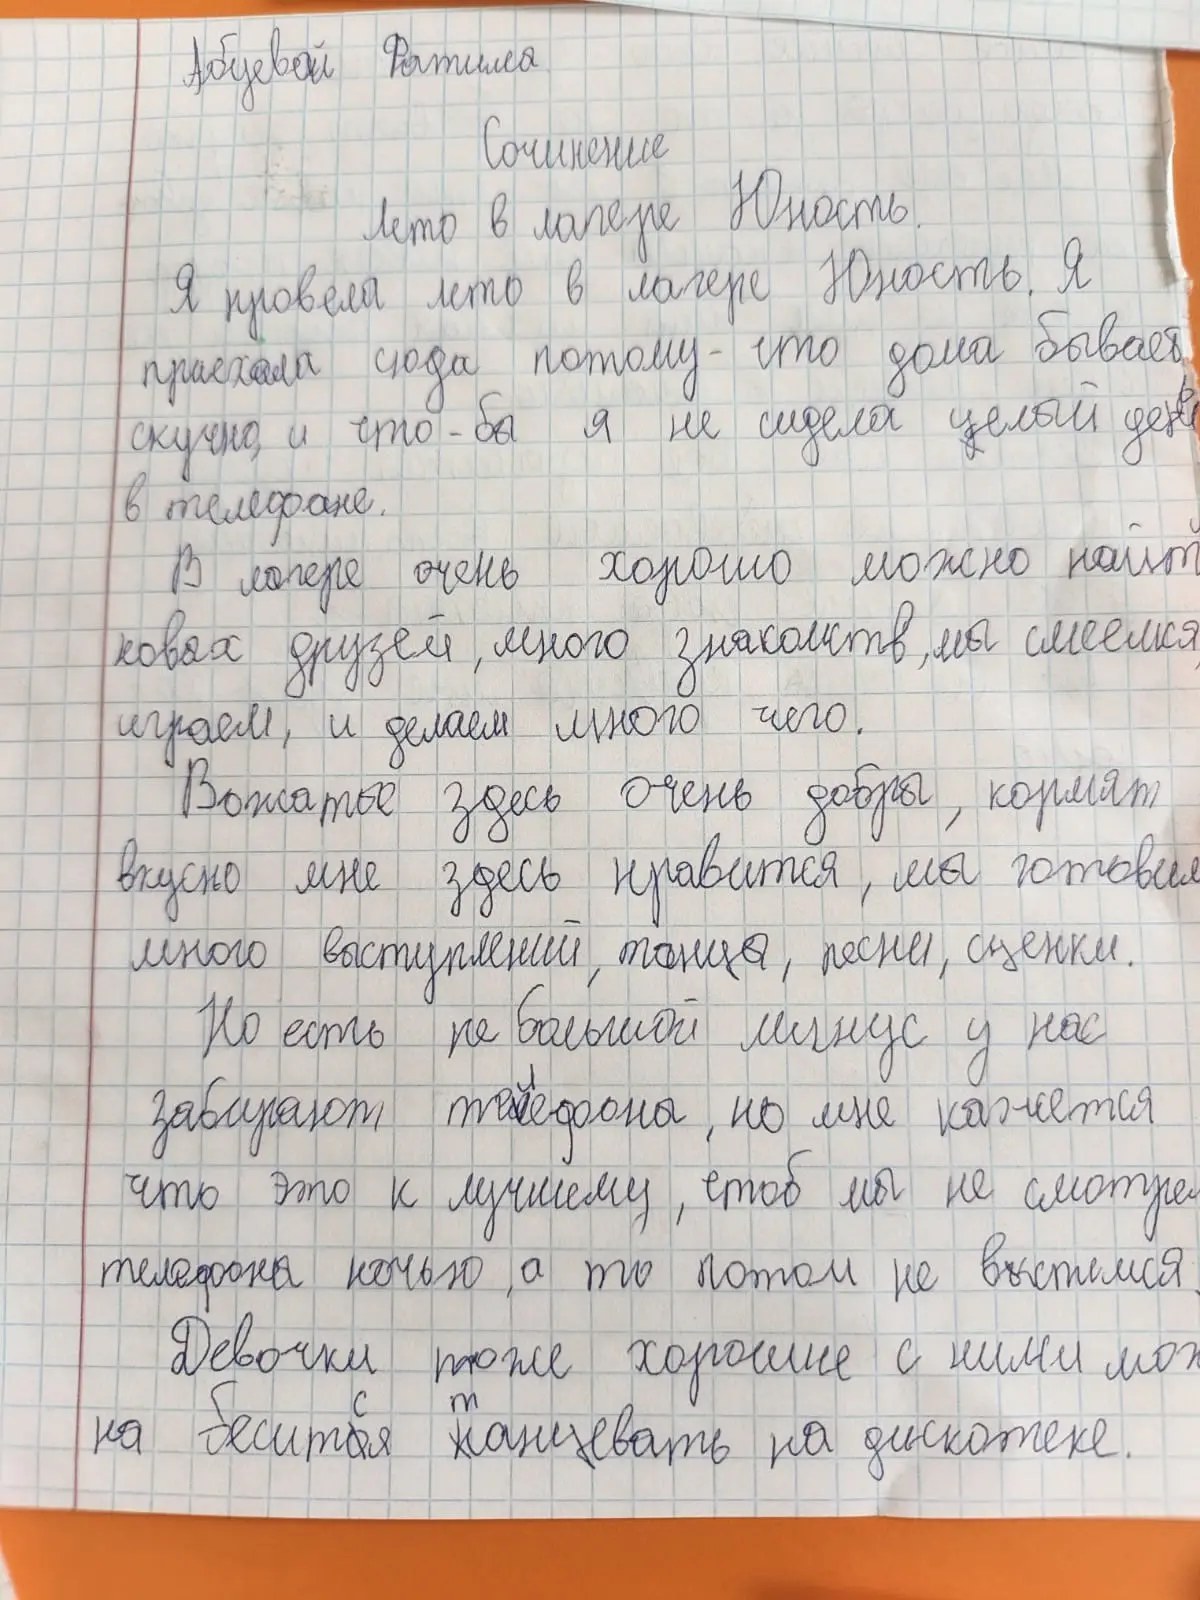 Абуевой Фатима
Сочинение
Лето в лагере Юность.
Я провела лето в лагере Юность. Я
приехала сюда потому-что дома бывает
скучно, и что-бы я не сидела целый день
в телефоне.
В лагере очень хорошо можно найт
новых друзей, много знакомств, мы смеемся,
играем, и делаем много чего.
Вожатые здесь очень добры, кормят
вкусно мне здесь нравится, мы готовим
много выступлений, танцы, песни, сценки.
Но есть небольшой минус у нас
забирают телефоны, но мне кажется
что это к лучшему, чтоб мы не смотрел
телефоны ночью, а то потом не выспемся.
Девочки тоже хорошие с ними мож
на беситсся танцевать на дискотеке.